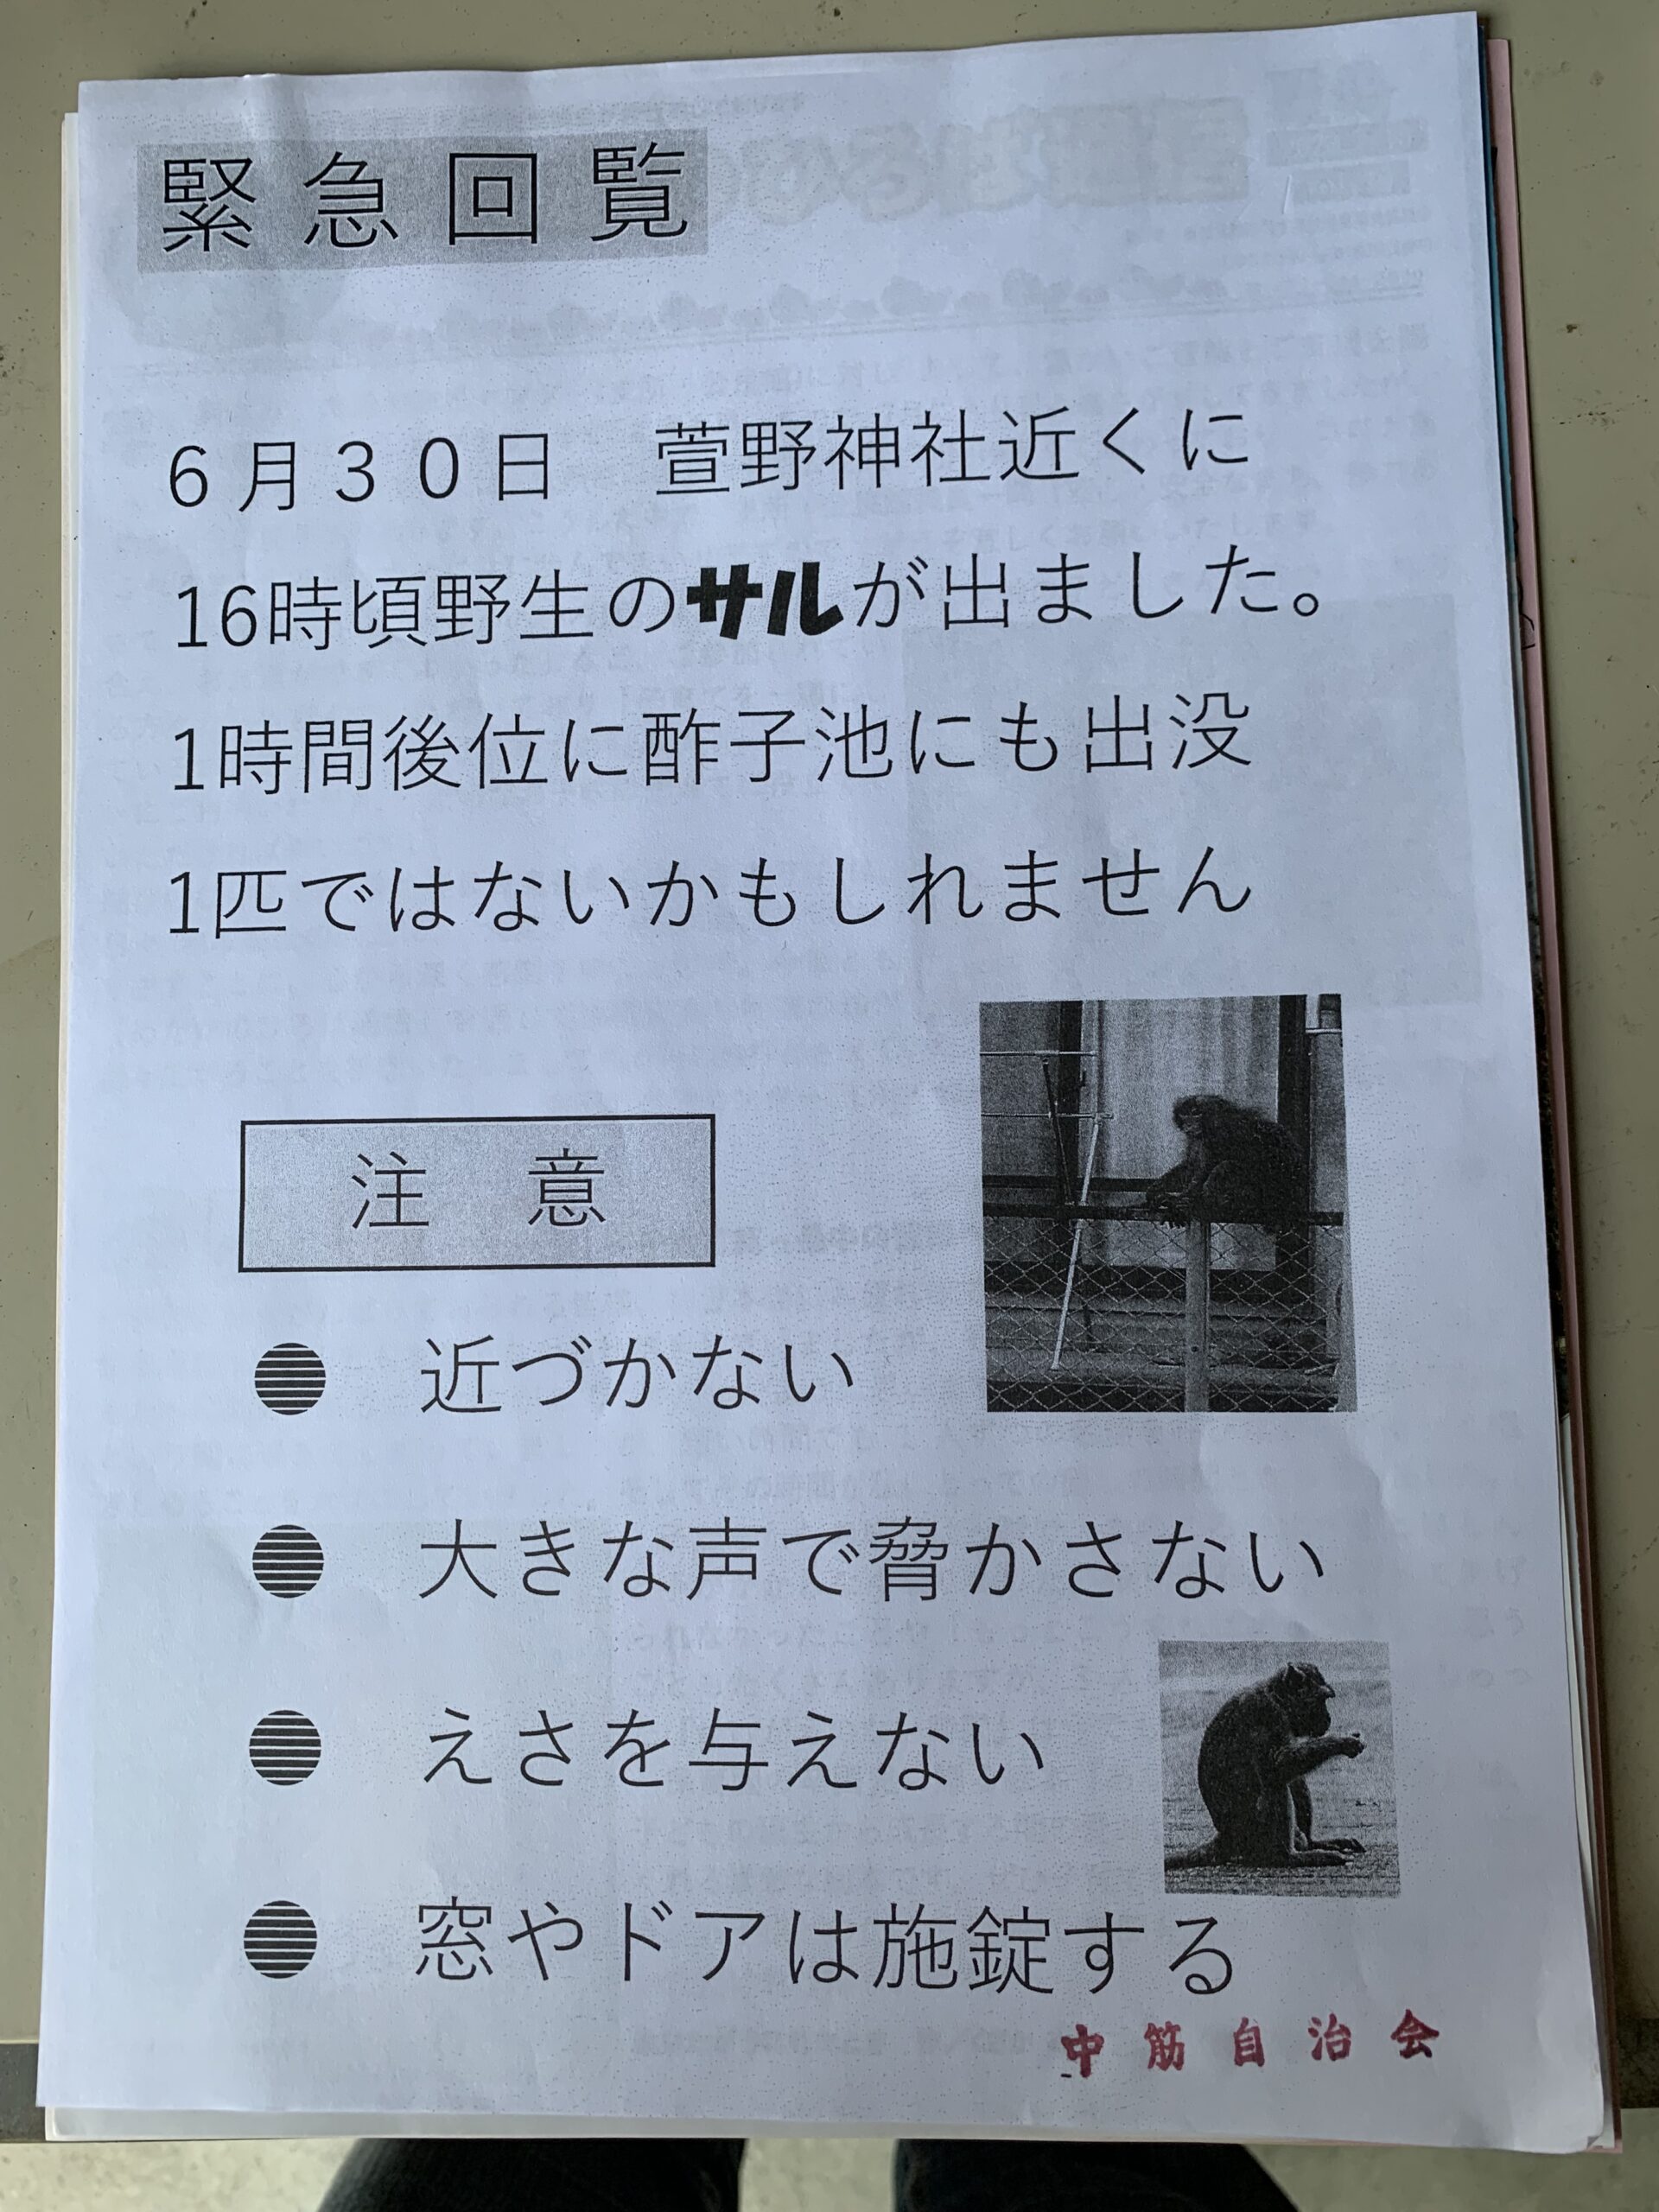 緊急回覧
６月３０日　萱野神社近くに
16時頃野生のサルが出ました。
1時間後位に酢子池にも出没
1匹ではないかもしれません
注　意
● 近づかない
● 大きな声で脅かさない
● えさを与えない
● 窓やドアは施錠する
中筋自治会